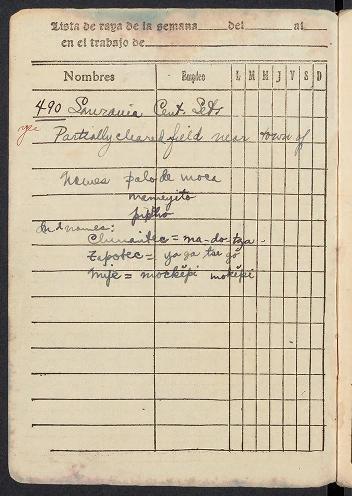 Lista de raya de la semana del al
en el trabajo de
Nombres Empleo L M M J V S D
490 Sauravia Cent. Sets
Partially cleared field near town of
Names palo de moca
mameyito
pipho
Ind names:
Chinantec = ma-do-tza
Zapotec = ya ga tse go
Mije = mockëpi mokëpi